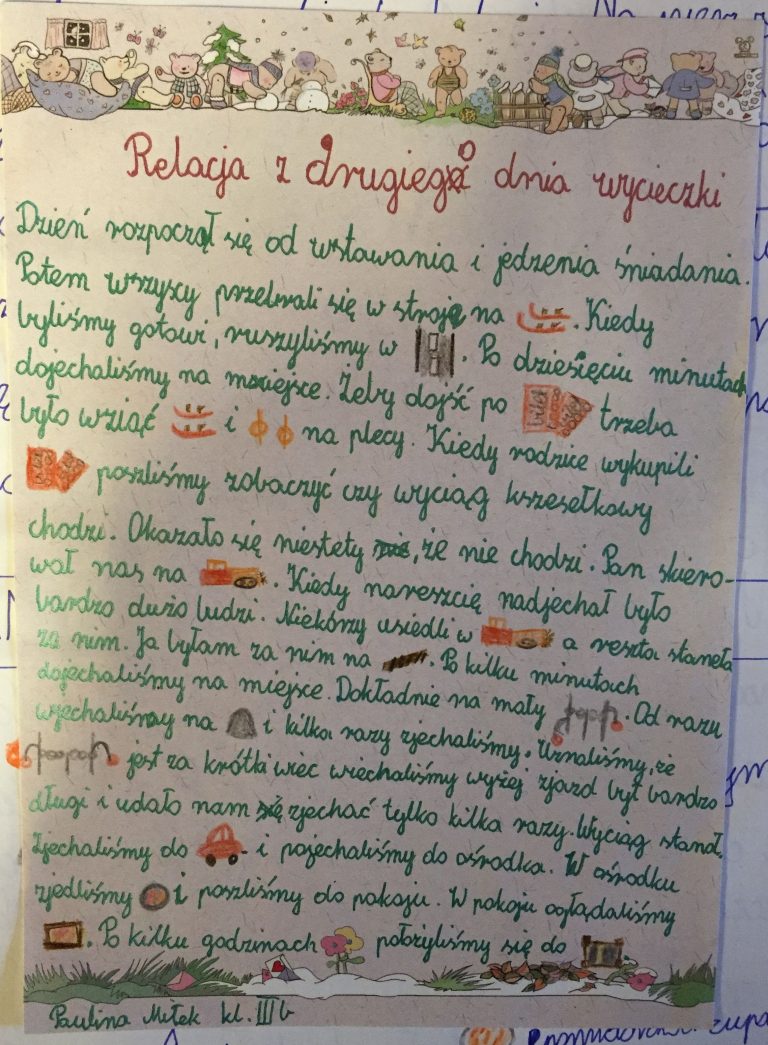 Relacja z drugiego dnia wycieczki
Dzień rozpoczął się od wstawania i jedzenia śniadania.
Potem wszyscy przebrali się w stroje na . Kiedy
byliśmy gotowi, ruszyliśmy w . Po dziesięciu minutach
dojechaliśmy na miejsce. Żeby dojść po bilety trzeba
było wziąć i na plecy. Kiedy rodzice wykupili
poszliśmy zobaczyć czy wyciąg krzesełkowy
chodzi. Okazało się niestety, że nie chodzi. Pan skiero-
wał nas na . Kiedy nareszcię nadjechał było
bardzo dużo ludzi. Niekórzy usiedli w a reszta staneła
za nim. Ja byłam za nim na . Po kilku minutach
dojechaliśmy na miejsce. Dokładnie na mały . Od razu
wjechaliśmy na i kilka razy zjechaliśmy. Uznaliśmy, że
jest za krótki wiec wiechaliśmy wyżej zjazd był bardzo
długi i udało nam się zjechać tylko kilka razy. Wyciąg stanął.
Zjechaliśmy do i pojechaliśmy do ośrodka. W ośrodku
zjedliśmy i poszliśmy do pokoju. W pokoju oglądaliśmy
. Po kilku godzinach położyliśmy się do
Paulina Miłek kl. III b